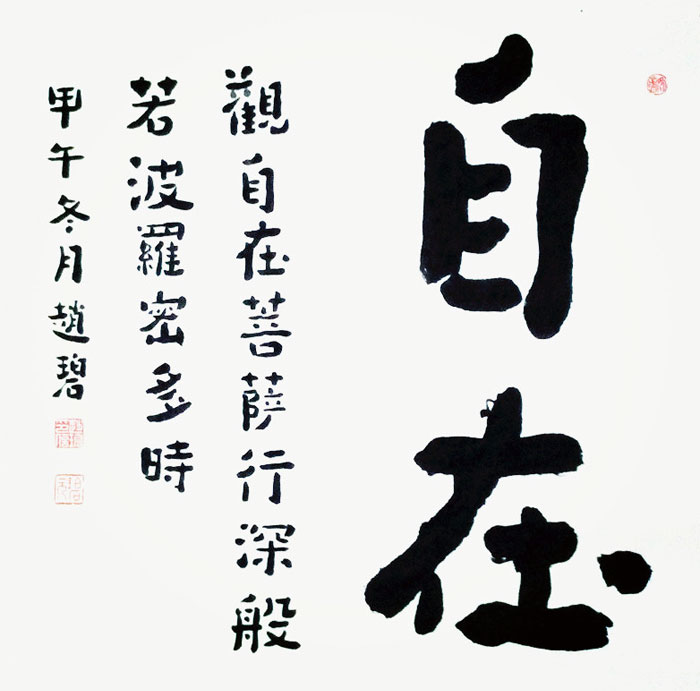 自在
觀自在菩薩行深般
若波羅密多時
甲午冬月趙碧